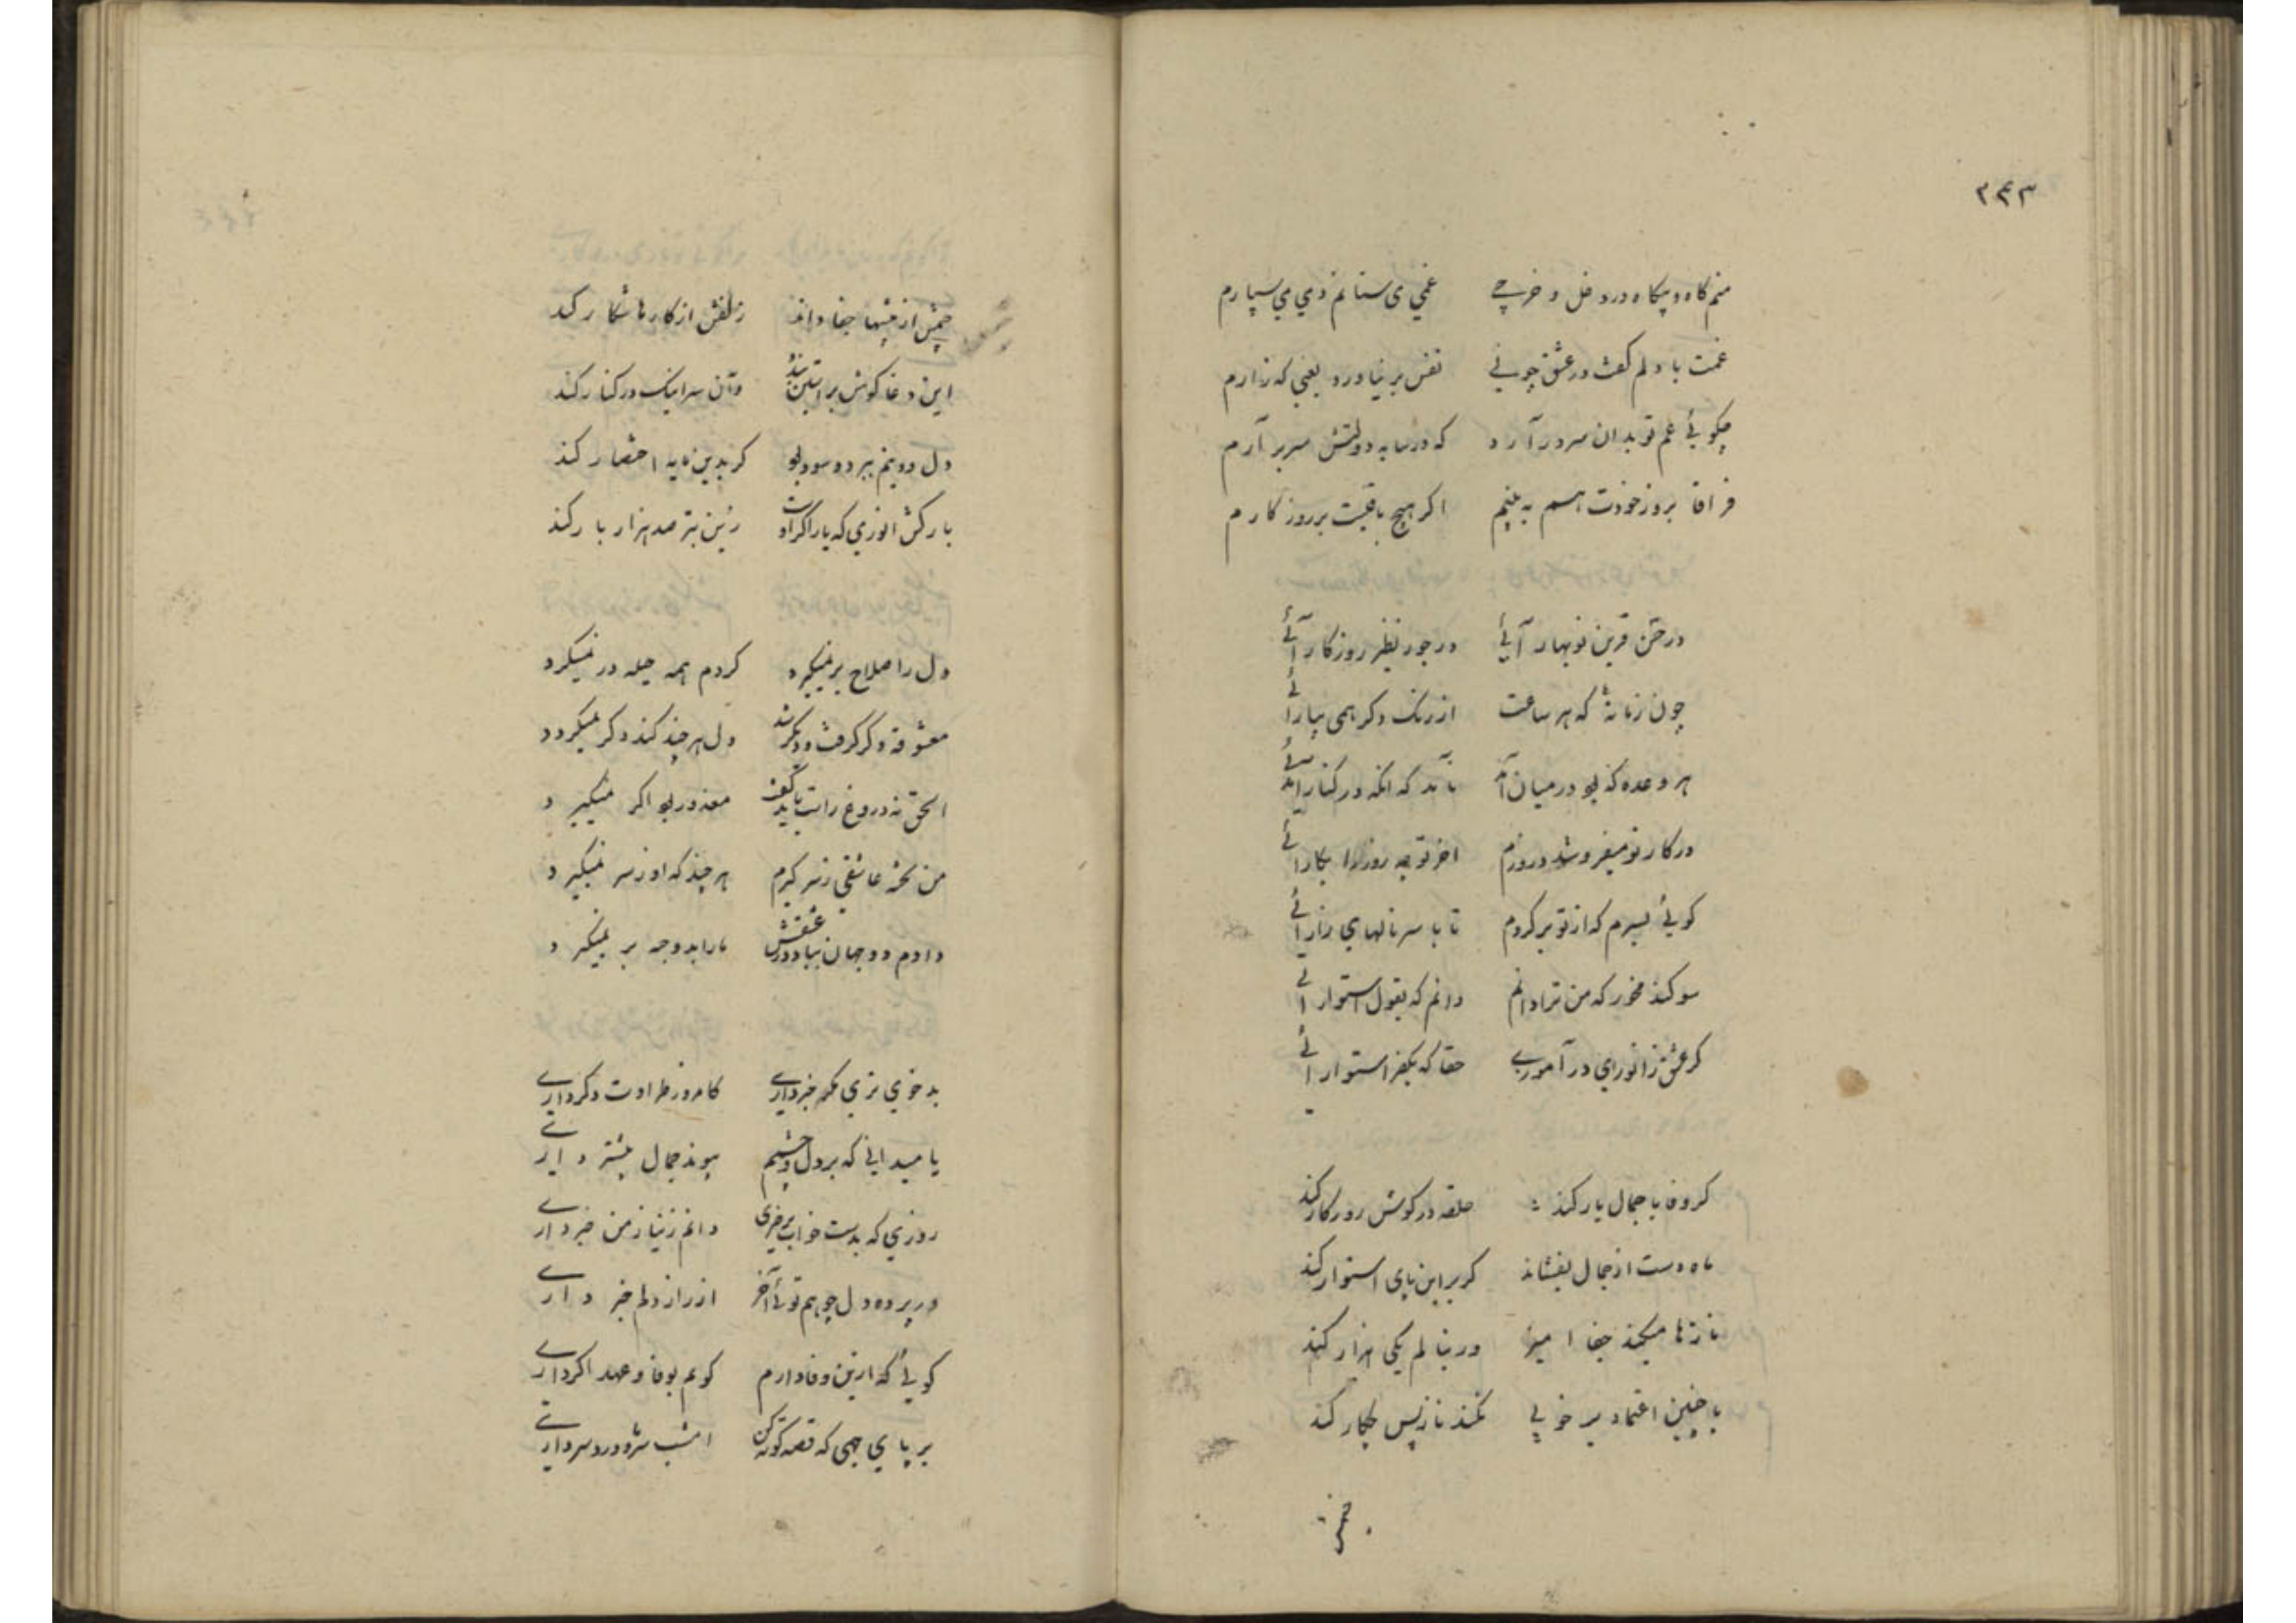 ۲۴۳
منم کاه و بیکاه در دخل و خرجے غمی می ستانم دمی می سپارم
غمت با دلم کفت در عشق چونی نفس بر نیاورد یعنی که زارم
چکوئی غم تو بدان سر در آرد که در سایه دولتش سر بر آرم
فراقا بروز خودت هم به بینم اکر هیچ باقیست بر روزکارم
در حسن قرین نوبهار آئی در جور نظیر روزکار آئی
چون زمانهٔ که هر ساعت از رنک دکر همی بیارائی
هر وعده که بود در میان آمد نامد که انکه در کنار آئی
در کار تو میفروشد روزم اخر تو چه روز را بکار آئی
کوئی بسرم که از تو برکردم تا با سر نالهای زار آئی
سوکند مخور که من ترا دانم دانم که بقول استوار آئی
کر عشق ز انوری در آموزے حقا که بکفر استوار آئی
کر وفا با جمال یار کند حلقه در کوش روزکار کند
ماه دست از جمال بفشاند کر برین پای استوار کند
نازها میکند جفا امیز ور بنالم یکی هزار کند
با چنین اعتماد بر خوبی نکند ناز پس چکار کند
چشمش
چشمش از فتنها جفا داند زلفش از کارها شکار کند
این دغا کوش بر استین بندد وآن سرا ینک در کنار کند
دل دو نیم ببرد و سود بود کر بدین مایه اختصار کند
بارکش انوری که یار اکر اوست زین بتر صد هزار بار کند
دل راه صلاح بر نمیکیرد کردم همه حیله در نمیکیرد
معشوقه دکر کرفت و دیکر شد دل هر چند کند دکر نمیکیرد
الحق نه دروغ راست باید کفت معذور بود اکر نمیکیرد
من تخته عاشقی ز سر کیرم هر چند که او ز سر نمیکیرد
دادم دو جهان بباد در عشقش مارا بدو جه بر نمیکیرد
بد خوی تری مکر خبر دارے کامروز طراوت دکر دارے
یا میدانی که بر دل و چشم پیوند جمال بیشتر دارے
روزی که بدست خواب برخیزی دانم ز نیاز من خبر دارے
در پرده دل چو هم توئی آخر از راز دلم خبر دارے
کوئی که ازین وفا دارم کویم بوفا و عهد اکر دارے
بر پای جهی که قصه کوته کن امشب سر و درد سر دارے